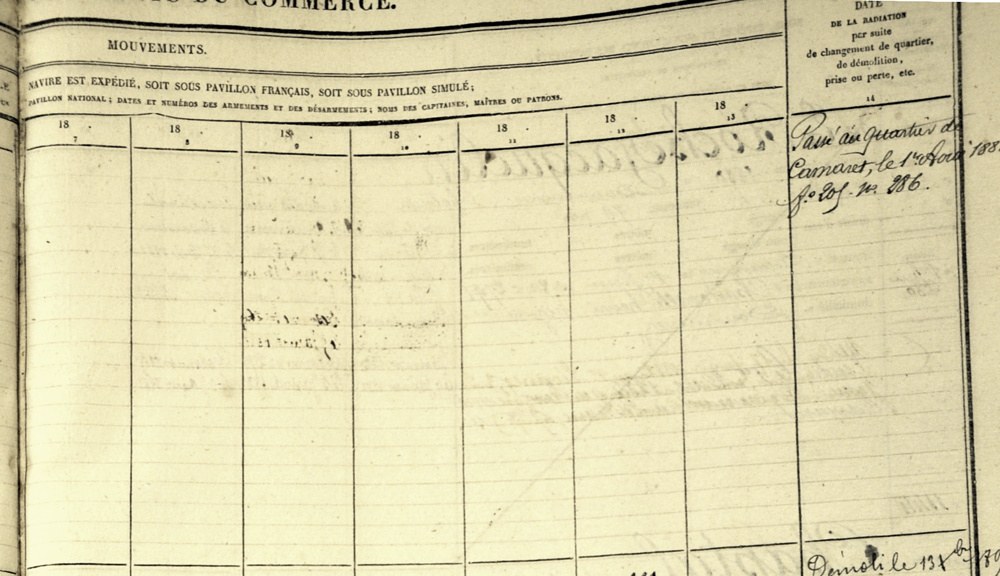 DU COMMERCE.
MOUVEMENTS.
NAVIRE EST EXPÉDIÉ, SOIT SOUS PAVILLON FRANÇAIS, SOIT SOUS PAVILLON SIMULÉ;
PAVILLON NATIONAL; DATES ET NUMÉROS DES ARMEMENTS ET DES DÉSARMEMENTS; NOMS DES CAPITAINES, MAÎTRES OU PATRONS.
18 18 18 18 18 18 18
7 8 9 10 11 12 13
DATE
DE LA RADIATION
par suite
de changement de quartier,
de démolition,
prise ou perte, etc.
14
Passé au quartier de
Camaret, le 1er 188
fo 205. No 286.
Démoli le 13 Xbre